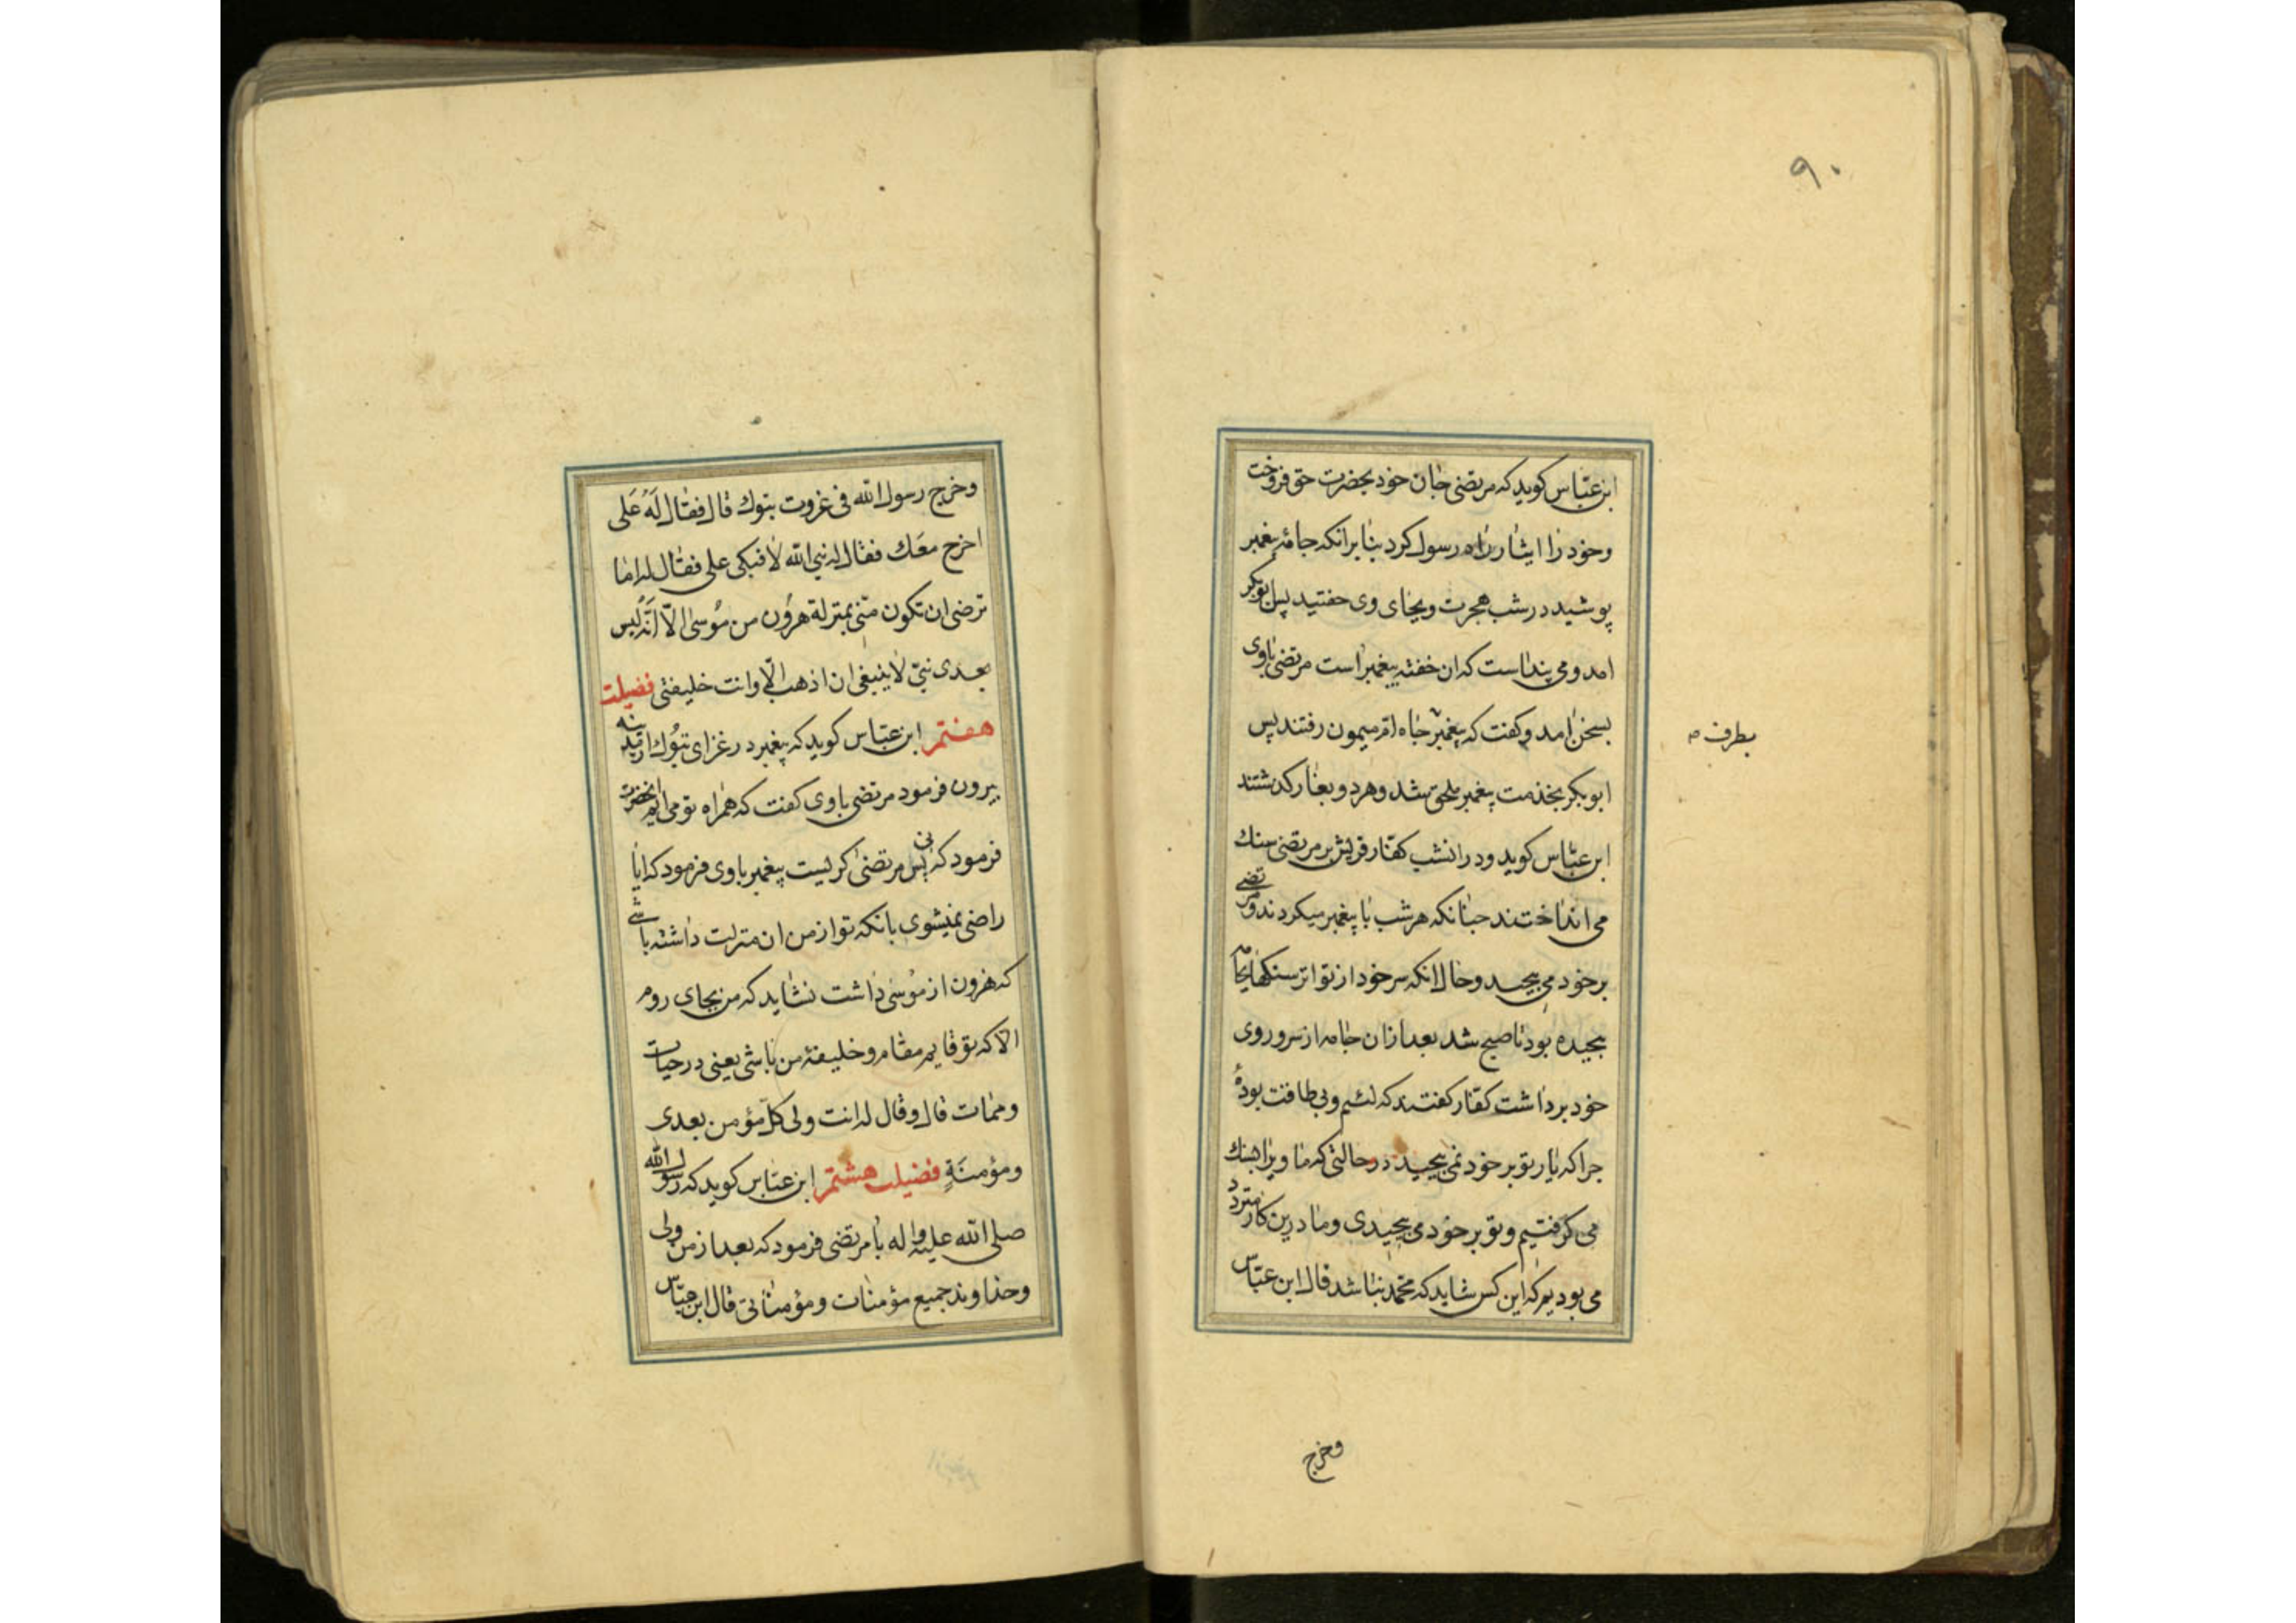 ۹۰
ابن عبّاس کوید که مرتضی جان خود بحضرت حق فروخت
وخود را ایثار راه رسول کرد بنابرانکه جامهٔ پیغمبر
پوشید در شب هجرت وبجای وی خفتید پس ابوبکر
امد ومی پنداست که ان خفته پیغمبر است مرتضی باوی
بسخن امد وکفت که پیغمبر بچاه ام میمون رفتند پس
بطرف
ابوبکر بخذمت پیغمبر ملحق شد وهر دو بغار کذشتند
ابن عبّاس کوید ودر انشب کفّار قریش بر مرتضی سنك
می انداختند چنانکه هر شب با پیغمبر میکردند ومرتضی
بر خود می پیچید وحال انکه سر خود از تواتر سنکها بجامه
پیچیده بود تا صبح شد بعد از ان جامه از سر وروی
خود برداشت کفّار کفتند که لئیم وبی طاقت بودهٔ
چرا که یار تو بر خود نمی پیچید در حالتی که ما ویرا بسنك
می کرفتیم وتو بر خود می پیچیدی وما درین کار متردد
می بودیم که این کس شاید که محمّد نباشد قال ابن عبّاس
وخرج
وخرج رسول الله فی غزوت تبوك قال فقال لَهُ عَلی
اخرج معَك فقال له نبی الله لا فبکی علی فقال له اما
ترضی ان تکون منّی بمنزلة هرون من موُسیٰ الّا انّه لیس
بعدی نبیّ لا ینبغی ان اذهب الّا وانت خلیفتی فضیلت
هفتم ابن عبّاس کوید که پیغمبر در غزای تبوُك از مدینه
بیرون فرمود مرتضی باوی کفت که همراه تو می ایم انحضرت
فرمود که نی پس مرتضی کریست پیغمبر باوی فرمود که ایا
راضی نمیشوی بانکه تو از من ان منزلت داشته باشی
که هرون از موُسی داشت نشاید که من بجای روم
الا که تو قایم مقام وخلیفهٔ من باشی یعنی در حیات
وممات قال وقال له انت ولی کلّ مؤمن بعدی
ومؤمنَةٍ فضیلت هشتم ابن عبّاس کوید که رسول الله
صلی الله علیه واله با مرتضی فرمود که بعد از من ولی
وخذاوند جمیع مؤمنات ومؤمنانی قال ابن عبّاس